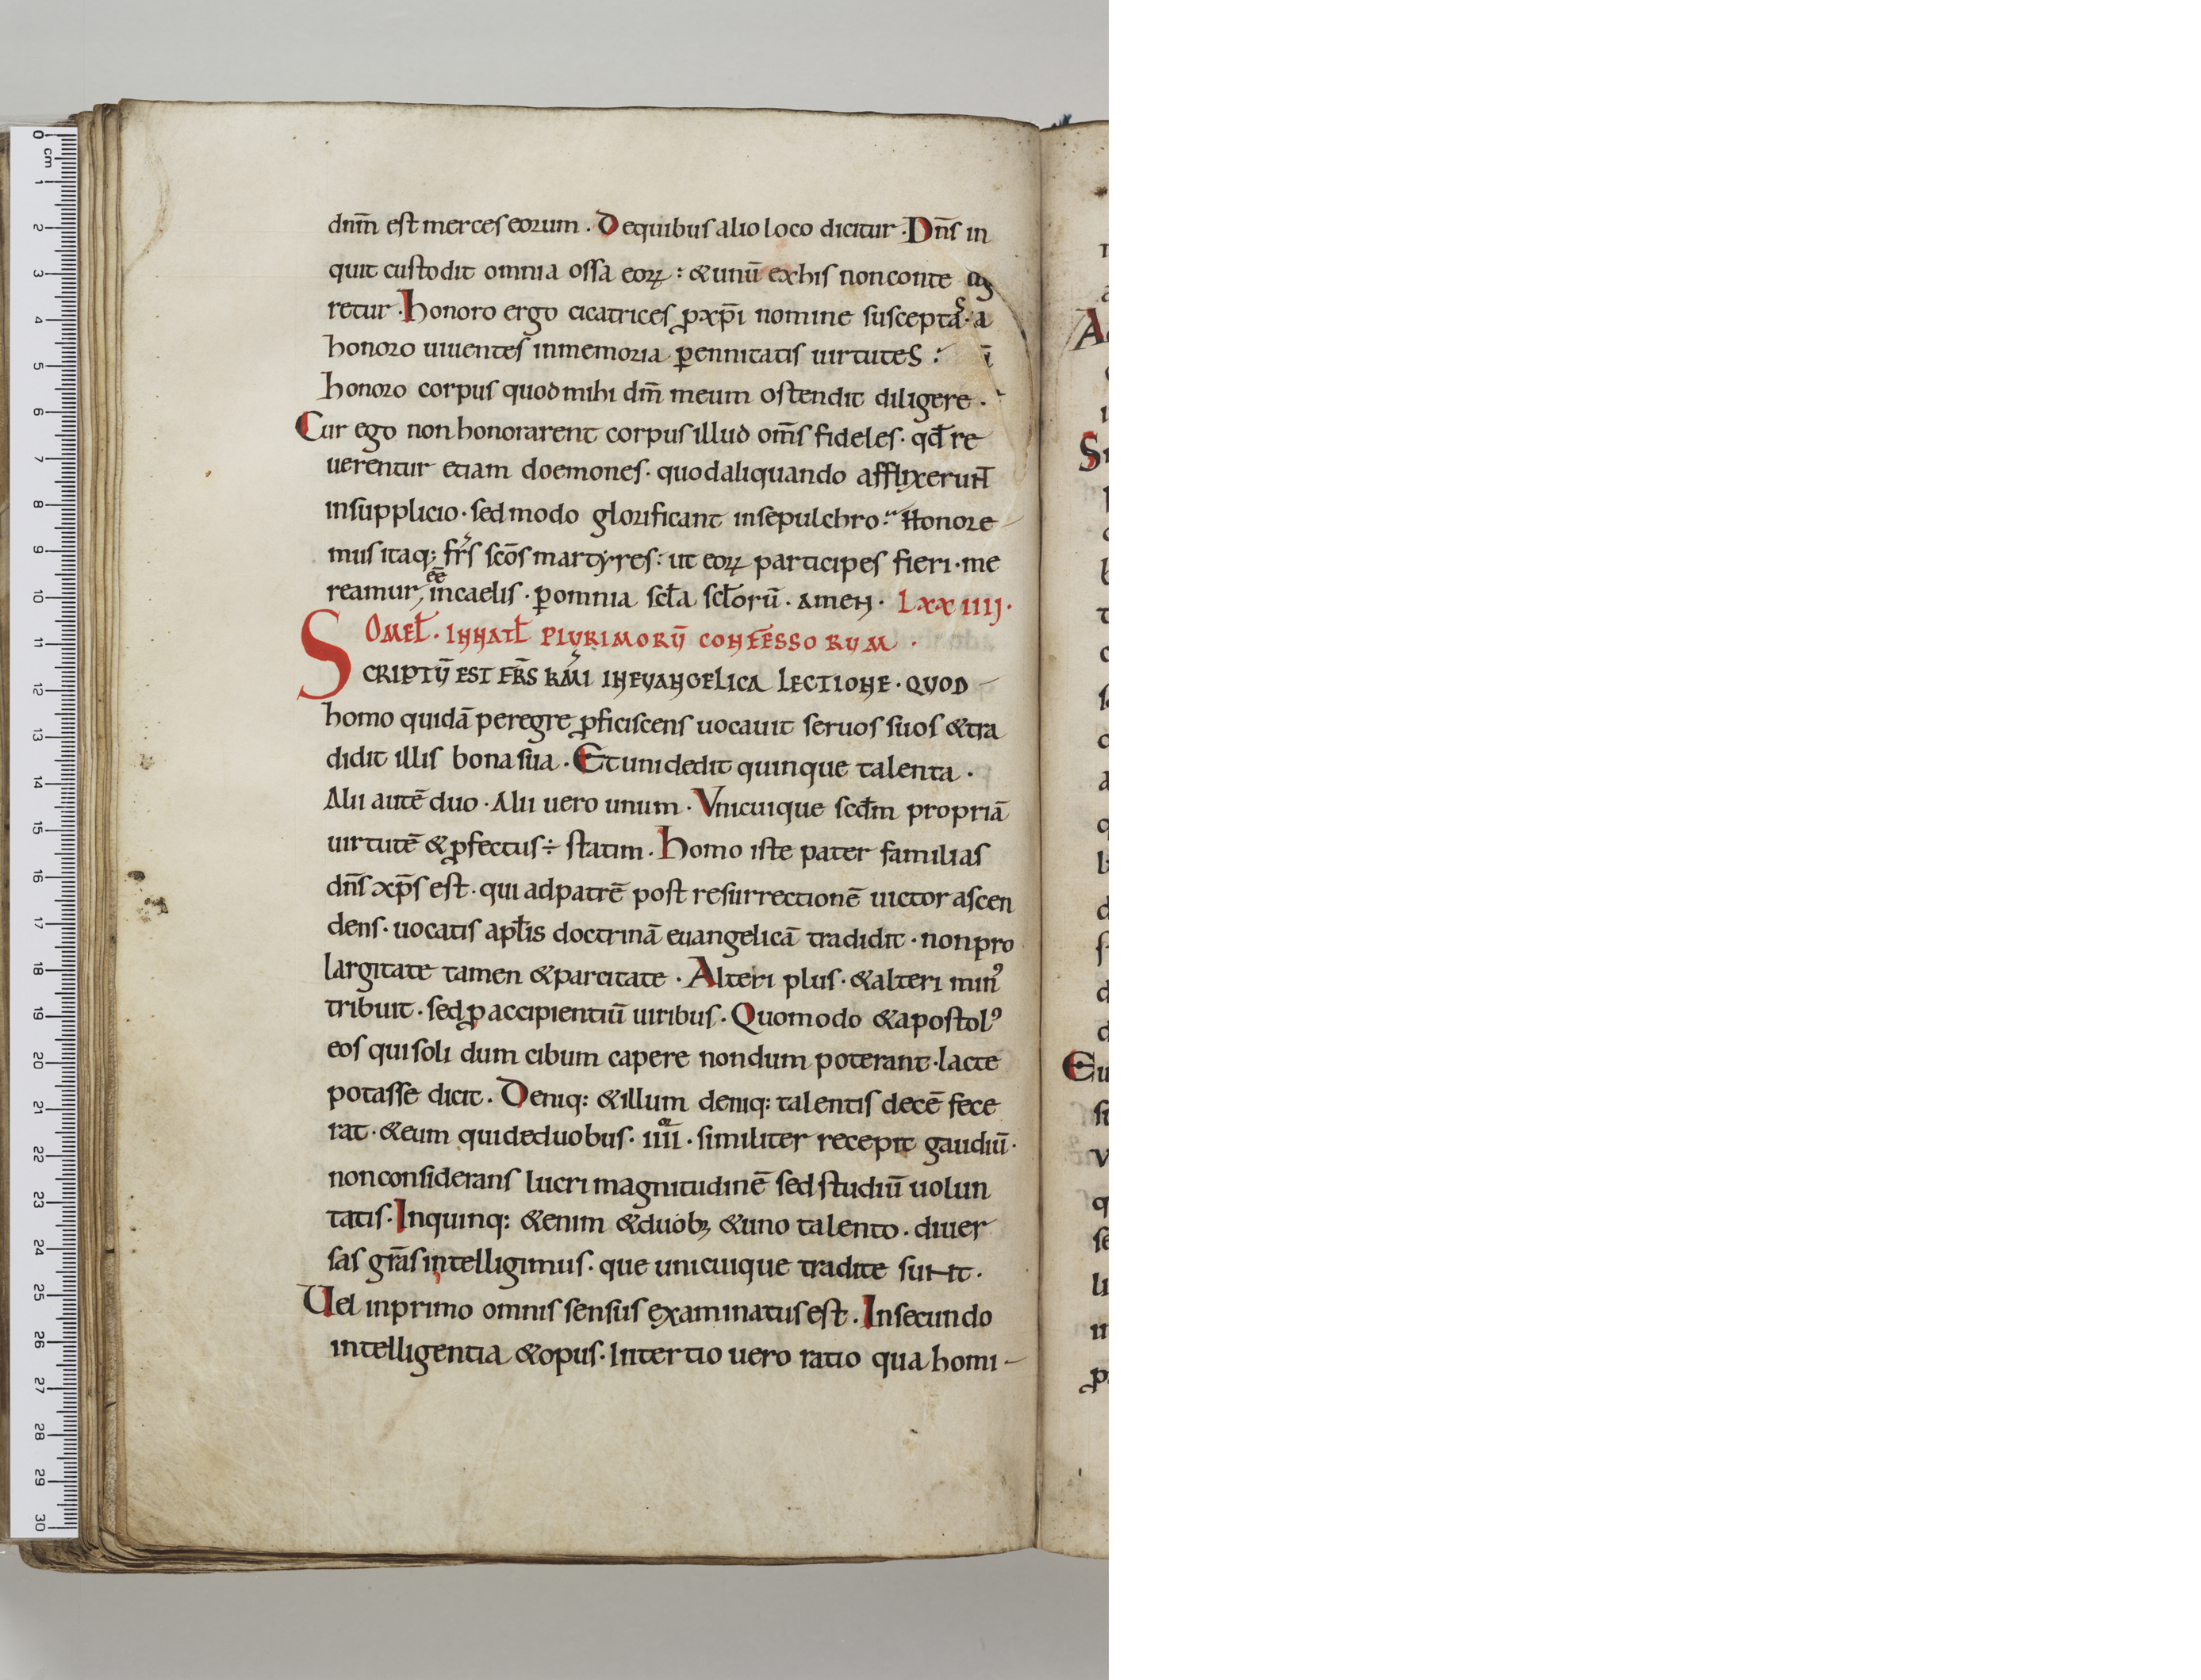 dnm̄ est merces eorum . De quibus alio loco dicitur . Dn̄s in
quit custodit omnia ossa eoꝝ : & unū ex his non conte
retur . Honoro ergo cicatrices ꝓ xp̄i nomine suscepta s . a
honoro uiuentes in memoria ꝑennitatis uirtutes :
honoro corpus quod mihi dm̄ meum ostendit diligere .
Cur ego non honorarent corpus illud om̄s fideles . qđ re
uerentur etiam doemones . quod aliquando afflixerunt
in supplicio . sed modo glorificant in sepulchro : Honore
mus itaq; fr̄s sc̄os martyres : ut eoꝝ participes fieri . me
reamur, ēē in caelis . ꝑ omnia sc̄la sc̄lorū . amen . LXXIIIJ .
OMEL̄ . IN NATL̄ PLURIMORŪ CONFESSORUM .
SCRIPTŪ EST FR̄S KM̄I IN EUANGELICA LECTIONE . QUOD
homo quidā peregre ꝓficiscens uocauit seruos suos & tra
didit illis bona sua . Et uni dedit quinque talenta .
Alii autē duo . Alii uero unum . Vnicuique scđm propriā
uirtutē & ꝓfectus ÷ statim . Homo iste pater familias
dn̄s xp̄s est . qui ad patrē post resurrectionē uictor ascen
dens . uocatis apl̄is doctrinā euangelicā tradidit . non pro
largitate tamen & parcitate . Alteri plus . & alteri min᾿
tribuit . sed ꝓ accipientiū uiribus . Quomodo & apostol᾿
eos qui soli dum cibum capere nondum poterant . lacte
potasse dicit . Deniq: & illum deniq: talentis decē fece
rat . & eum qui de duobus . iiii . similiter recepit gaudiū .
non considerans lucri magnitudinē sed studiū uolun
tatis . In quinq: & enim & duob; & uno talento . diuer
sas gr̄as intelligimus . que unicuique tradite sunt .
Uel in primo omnis sensus examinatus est . In secundo
intelligentia & opus . In tertio uero ratio qua homi-